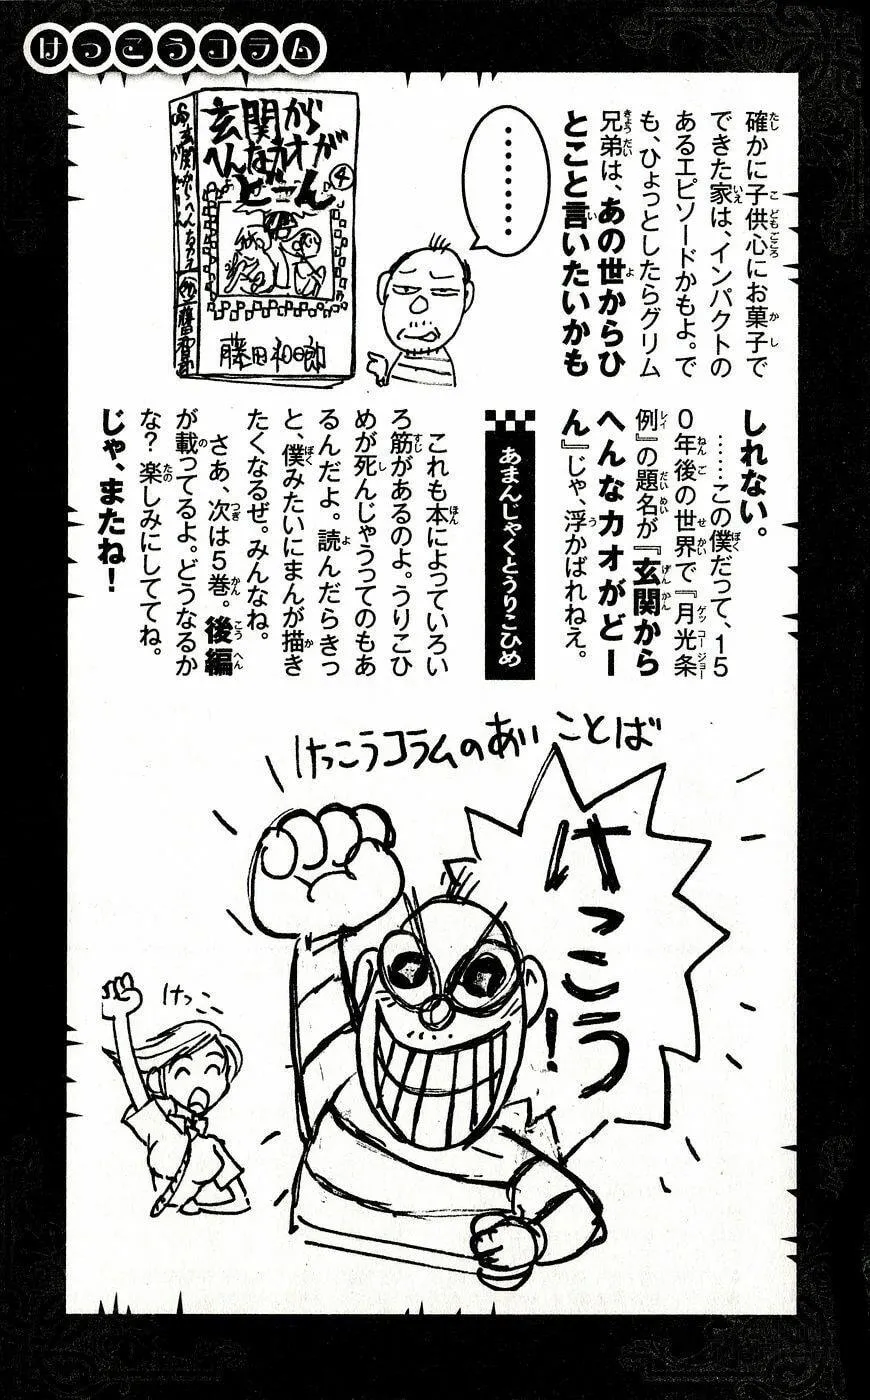 けっこうコラム
確かに子供心にお菓子で
できた家は、インパクトの
あるエピソードかもよ。で
も、ひょっとしたらグリム
兄弟は、あの世からひ
とこと言いたいかも
しれない。
……この僕だって、15
0年後の世界で『月光条
例』の題名が『玄関から
へんなカオがどー
ん』じゃ、浮かばれねえ。
………
玄関から
へんなカオが
どーん
4
藤田和日郎
あまんじゃくとうりこひめ
これも本によっていろい
ろ筋があるのよ。うりこひ
めが死んじゃうってのもあ
るんだよ。読んだらきっ
と、僕みたいにまんが描き
たくなるぜ。みんなね。
さあ、次は5巻。後編
が載ってるよ。どうなるか
な？楽しみにしててね。
じゃ、またね！
けっこうコラムのあいことば
けっこう！
けっこー